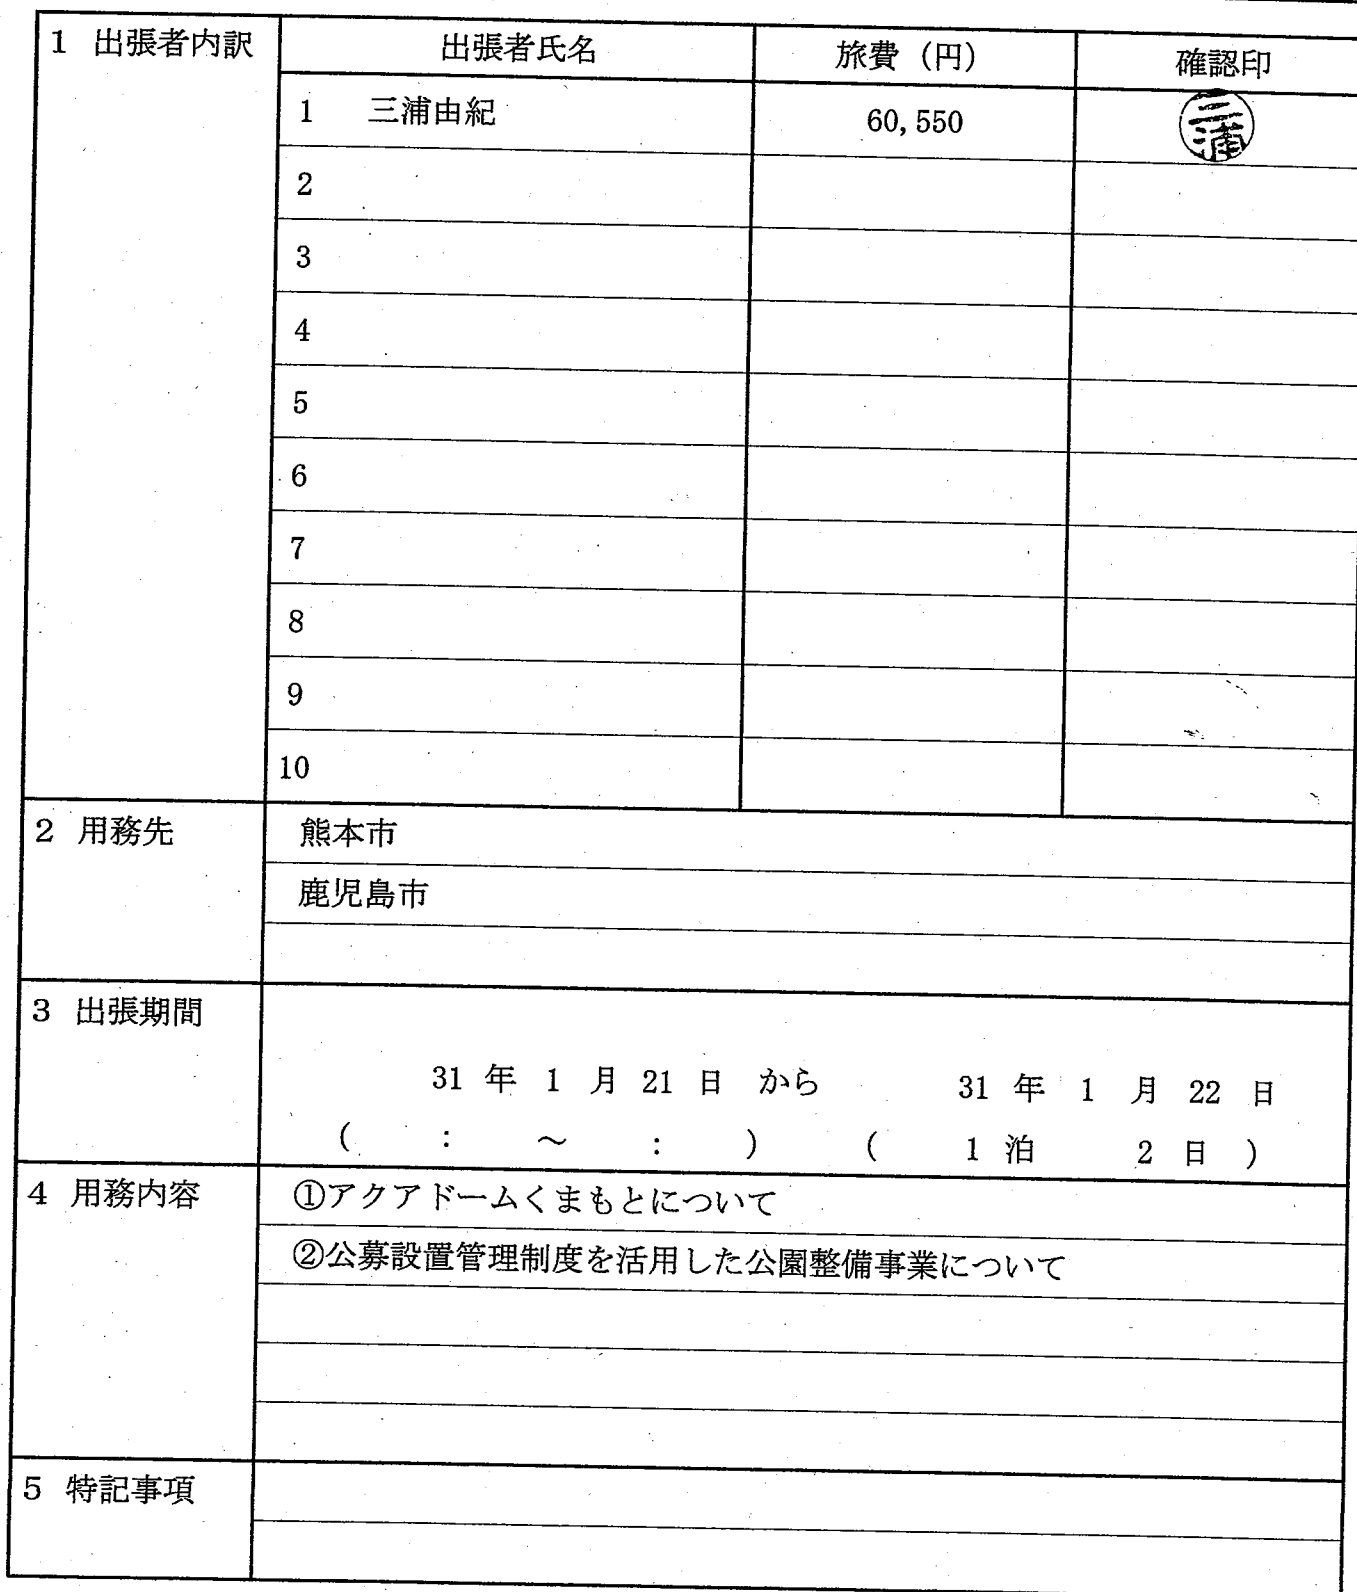 1 出張者内訳 出張者氏名 旅費（円） 確認印
1 三浦由紀 60,550 三浦
2
3
4
5
6
7
8
9
10
2 用務先 熊本市
鹿児島市
3 出張期間
31 年 1 月 21 日 から 31 年 1 月 22 日
( : ～ : ) ( 1 泊 2 日 )
4 用務内容 ①アクアドームくまもとについて
②公募設置管理制度を活用した公園整備事業について
5 特記事項